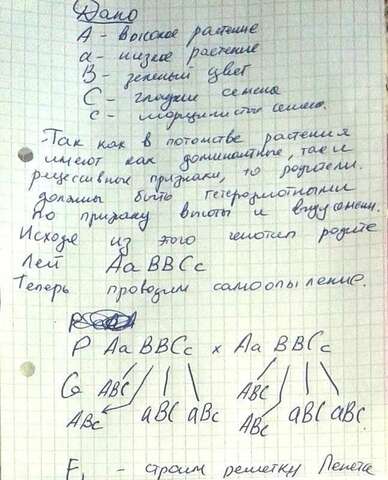 Дано
А - высокое растение
а - низкое растение
В - зеленый цвет
С - гладкие семена
с - морщинистые семена.
Так как в потомстве растения
имеют как доминантные, так и
рецессивные признаки, то родители
должны быть гетерозиготными
по признаку высоты и виду семени.
Исходя из этого генотип родите
лей АаВВСс
Теперь проводим самоопыление.
Р АаВВСс х АаВВСс
G АВС АВС
АВс аВС аВс АВс аВС аВс
F₁ - строим решетку Пенета